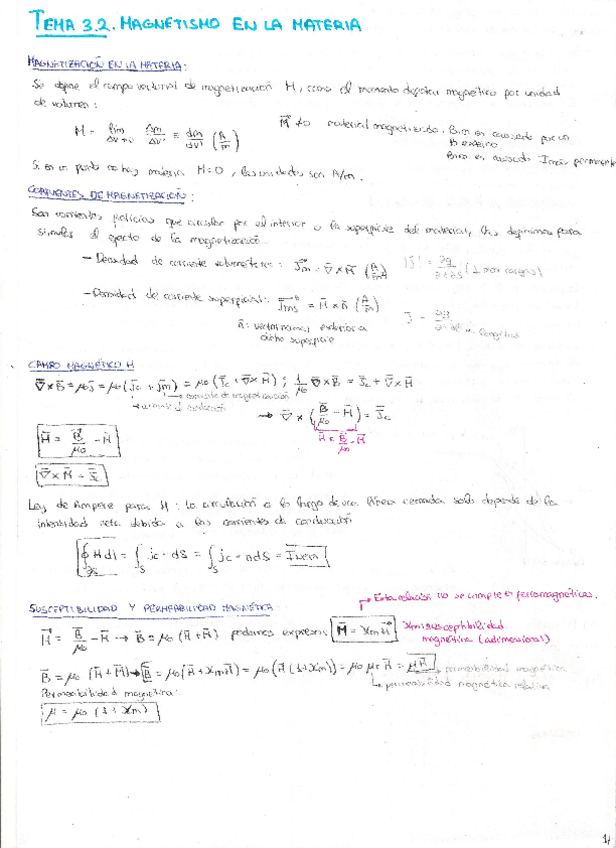 TEMA 3.2. MAGNETISMO EN LA MATERIA
MAGNETIZACIÓN EN LA MATERIA:
Se define el campo vectorial de magnetización M, como el momento dipolar magnético por unidad
de volumen:
M = lim Δv→0 Δm/Δv = dm/dv (A/m)
M ≠ 0 material magnetizado. Bien en causado por un
B externo.
Bien en causado Imán permanente
Si en un punto no hay materia M=0, las unidades son A/m.
CORRIENTES DE MAGNETIZACIÓN:
Son corrientes ficticias que circulan por el interior o la superficie del material, las definimos para
simular el efecto de la magnetización.
- Densidad de corriente volumétrica: Jm = ∇ x M
- Densidad de corriente superficial: Jms = M x n (A/m)
n: vector normal, exterior a
dicha superficie
CAMPO MAGNÉTICO H
∇ x B = μ₀ J = μ₀ (Jc + Jm) = μ₀ (Jc + ∇ x M); 1/μ₀ ∇ x B = Jc + ∇ x M
corriente de magnetización
corriente de conducción
→ ∇ x (B/μ₀ - M) = Jc
H = B/μ₀ - M
H = B/μ₀ - M
∇ x H = Jc
Ley de Ampere para H: La circulación a lo largo de una línea cerrada solo depende de la
intensidad neta debida a las corrientes de conducción
∮ H dl = ∫s jc · dS = ∫s jc · n dS =
SUSCEPTIBILIDAD Y PERMEABILIDAD MAGNÉTICA
Esta relación no se cumple ferromagnéticos.
H = B/μ₀ - M → B = μ₀ (H + M) podemos expresar M = Xm H
Xm: susceptibilidad
magnética (adimensional)
B = μ₀ (H + M) → B = μ₀ (H + Xm H) = μ₀ (H (1 + Xm)) = μ₀ μr H = μ H
permeabilidad magnética
permeabilidad magnética relativa
Permeabilidad magnética:
μ = μ₀ (1 + Xm)
1/